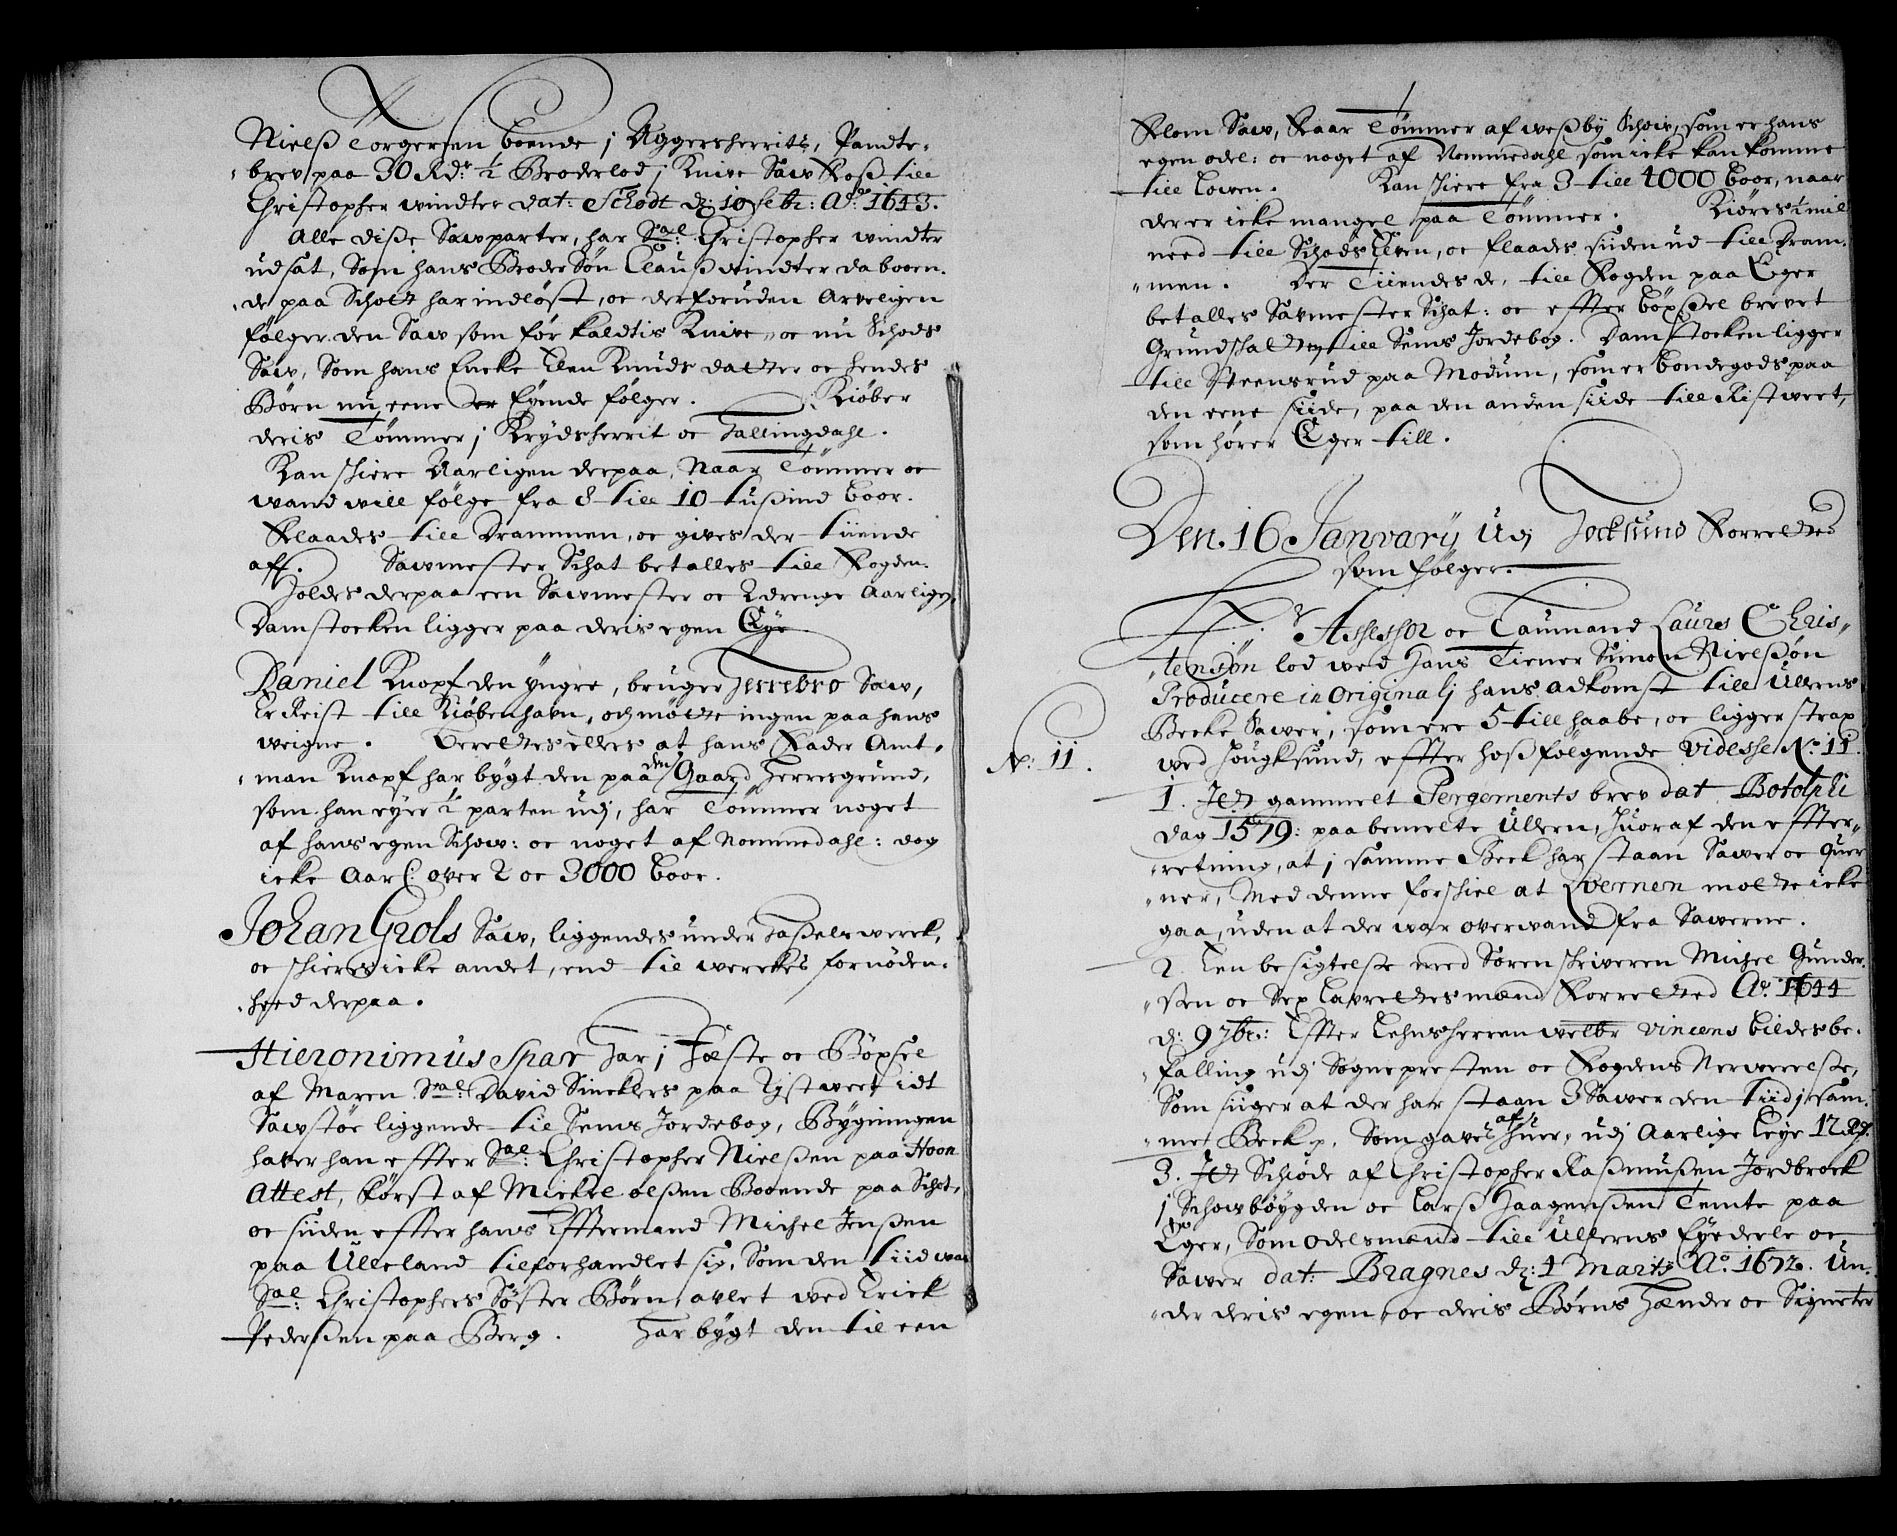 Nielß Torgersen boende j Aggersherrits, Pandte-
brev paa 30 Rdr: ½ Broderlod j Knive Saw Foß till
Christopher windter dat: Schodt d: 10 febr: Ao: 1643.
Alle diße Sawparter, har Sal: Christopher windter
udsat, Som hans Broder Søn Clauß windter da booen-
de paa Schott har indløst, oc derforuden Arveligen
følger den Saw som før kaldtis Knive, oc nu Schods
Saw, Som hans Encke Elen Knuds datter oc hendes
Børn nu eene der Eyende følger. Kiøber
deris Tømmer j Krydsherrit oc Hallingdahl.
Kan schiere Aarligen derpaa, Naar Tømmer oc
wand will følge fra 8 till 10 tußind boor.
Flaades till Drammen, oc gives der tiiende
aff. Sawmester Schat betalles till Fogden.
Holdes derpaa een Sawmester oc 2 drenge Aarligen,
Damstocken ligger paa deris egen Eye
Daniel Knopf den yngre, bruger Herrebro Saw,
Er Reist till Kiøbenhavn, och møtte ingen paa hans
weigne. Berettes ellers at hans Fader Amt-
man Knopf har bygt den paa den Gaard Herresgrund,
som han eyer ½ parten udj, har Tømmer noget
af hans egen Schow: oc noget af Nommedahl: dog
icke Aarl: over 2 oc 3000 boor.
Johan Grols Saw, liggendes under Haßels werck,
oc schieres icke andet, end til werckes fornøden-
heed derpaa.
Hieronimus Spar Har j Fæste oc Bøxsel
af Maren Sal: David Sincklers paa Ristweet idt
Sawstøe liggende til Sems Jordebog, Bygningen
haver han effter Sal: Christopher Nielßen paa Hoen
Attest, først af Mickel olßen Booende paa Schot,
oc siiden effter hans Efftermand Michel Jenßen
paa Ulleland tilforhandlet sig, Som den tiid war
Sal: Christophers Søster Børn, avlet wed Erick
Pederßen paa Berg. Har bygt den til een
Flom Saw, Faar Tømmer af weßby Schow, som er hans
egen odel: oc noget af Nommedahl som icke kan komme
till Lowen. Kan schiere fra 3 till 4000 boor, naar
der er icke mangel paa Tømmer. Kiøres ½ miil
need till Schods Elven, oc flaades siiden ud till Dram-
men. Der Tiiendes de, till Fogden paa Eger
betalles Savmester Schat: oc effter bøxßel brevet
Grundschatten till Sems Jordebog. Damstocken ligger
till Steensrud paa Modum, som er bondegods paa
den eene siide, paa den anden siide till Ristweet,
som hører Eger till.
Den. 16 Janvarij Udj Hocksund Forrettes
som følger.
Hr Assessor oc Laumand Laures Chris-
tensøn lod wed Hans Tiener Simon Nielßøn
Producere in Originalj hans adkomst till Ullerns
Becke Sawer, som ere 5 till haabe, oc ligger strax
wed Hougksund, effter hoßfølgende Videsse No: 11.
No: 11.
1. Jet gammelt Pergements brev dat Botolphi
dag 1579: paa bemelte Ullern, Huoraf den effter-
retning, at j samme Beck har staan Sawer oc Quer-
ner, Med denne forschiel at Qvernen motte icke
gaa, uden at der war overwand fra Sawerne.
2. Een besigtelße med Sørenschriveren Michel Gunder-
sen oc Sex Lavrettesmænd Forretted Ao. 1644
d: 9 7br.: Effter Lehnsherren welbr Vincens Bildes be-
falling udj Sogneprestens oc Fogdens Nerwerelße,
Som siiger at der har staan 3 Sawer den tiid j sam-
me Beck, Som gavel af Huer, udj Aarlige Leye 12 Rd.
3. Jet Schiøde af Christopher Raßmußen Jordbreck
j Schowbøygden oc Larß Haagenßen Temte paa
Eger, Som odelsmænd till Ullerns Eyedeele oc
Sawer dat: Bragnes d: 4 Martij Ao. 1672. Un-
der deris egen oc deris Børns Hænder oc Signeter